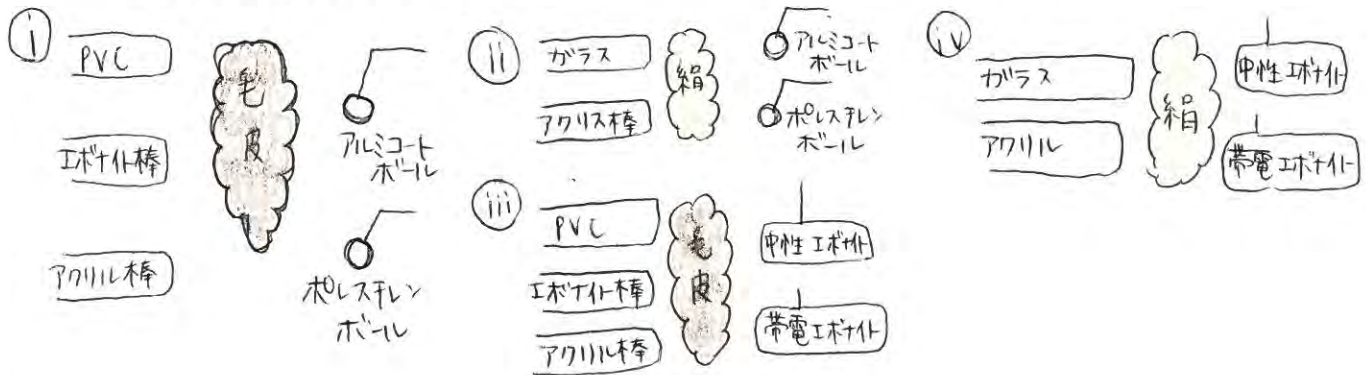 i
PVC
エボナイト棒
アクリル棒
毛皮
アルミコート
ボール
ポレスチレン
ボール
ii
ガラス
アクリス棒
絹
アルミコート
ボール
ポレスチレン
ボール
iii
PVC
エボナイト棒
アクリル棒
毛皮
中性エボナイト
帯電エボナイト
iv
ガラス
アクリル
絹
中性エボナイト
帯電エボナイト